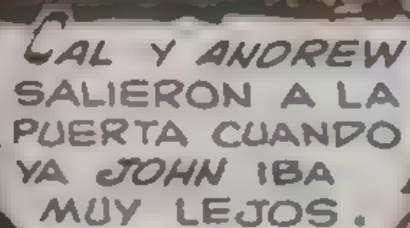 CAL Y ANDREW
SALIERON A LA
PUERTA CUANDO
YA JOHN IBA
MUY LEJOS.